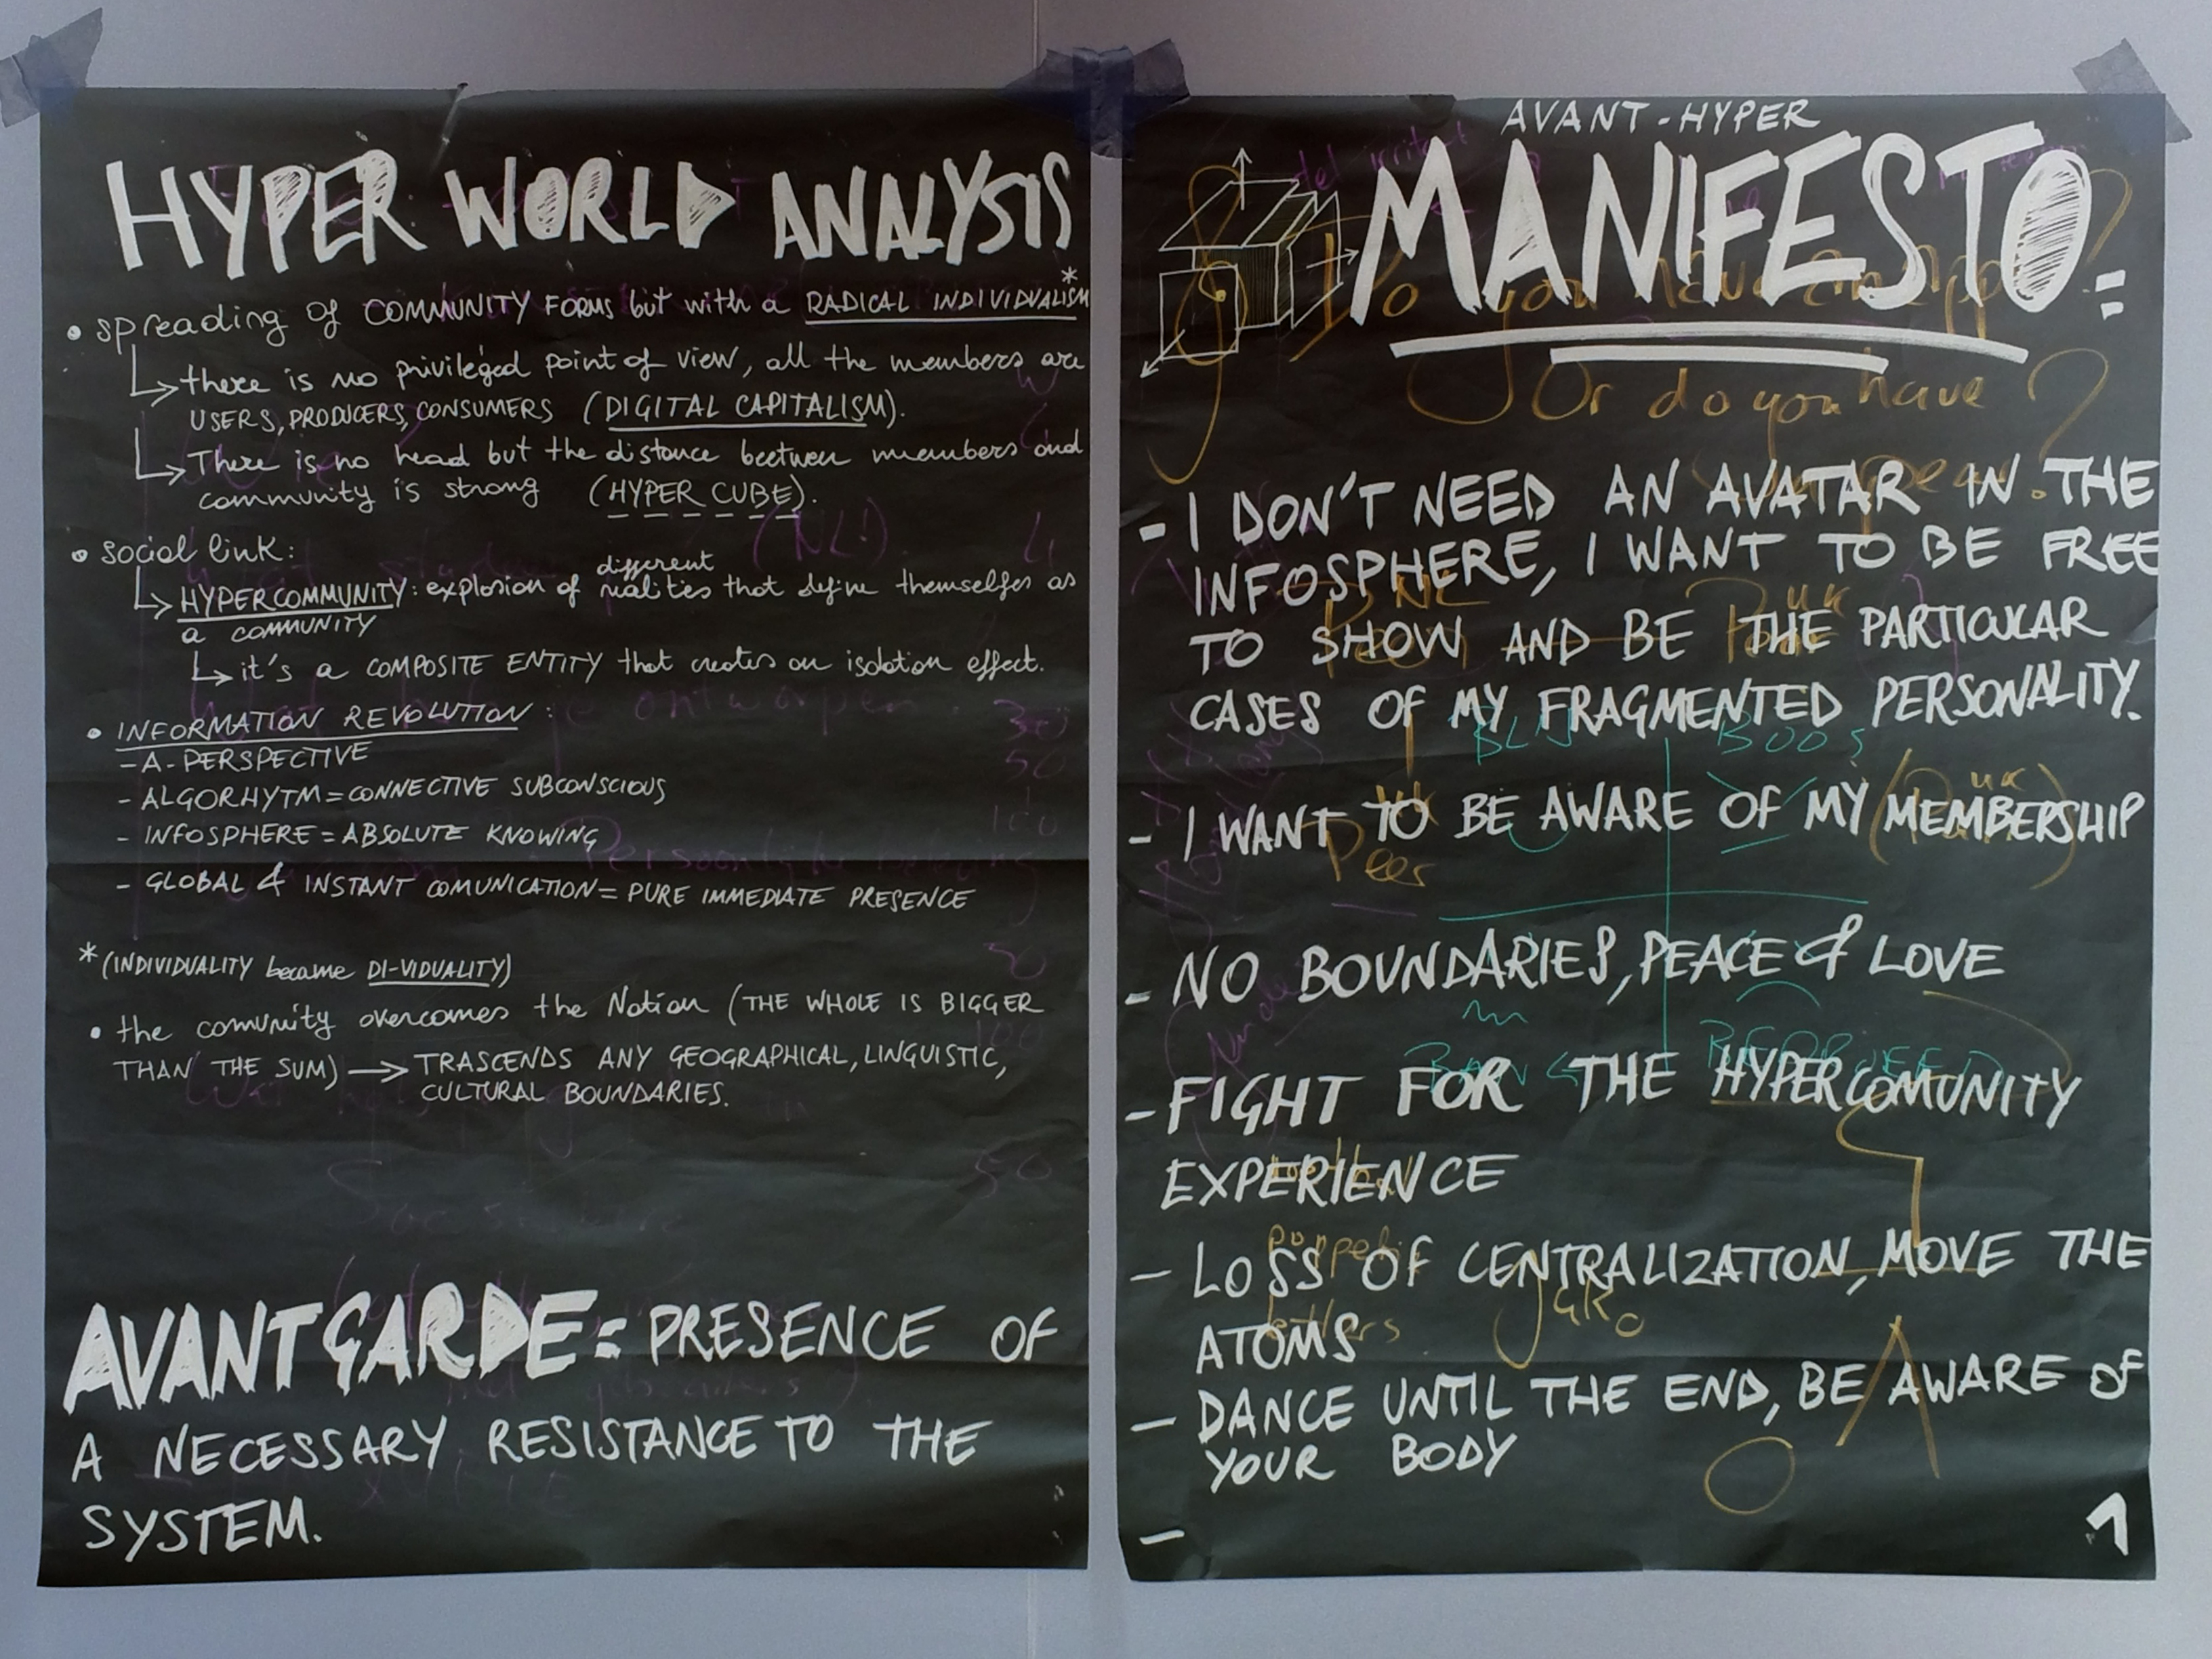 HYPER WORLD ANALYSIS
• spreading of COMMUNITY FORMS but with a RADICAL INDIVIDUALISM*
↳ there is no privileged point of view, all the members are
USERS, PRODUCERS, CONSUMERS (DIGITAL CAPITALISM).
↳ There is no head but the distance beetwen members and
community is strong (HYPER CUBE).
• social link:
different
↳ HYPERCOMMUNITY: explosion of realities that define themselfes as
a COMMUNITY
↳ it's a COMPOSITE ENTITY that creates an isolation effect.
• INFORMATION REVOLUTION:
- A-PERSPECTIVE
- ALGORHYTM = CONNECTIVE SUBCONSCIOUS
- INFOSPHERE = ABSOLUTE KNOWING
- GLOBAL & INSTANT COMUNICATION = PURE IMMEDIATE PRESENCE
* (INDIVIDUALITY became DI-VIDUALITY)
• the comunity overcomes the Nation (THE WHOLE IS BIGGER
THAN THE SUM) → TRASCENDS ANY GEOGRAPHICAL, LINGUISTIC,
CULTURAL BOUNDARIES.
AVANTGARDE = PRESENCE OF
A NECESSARY RESISTANCE TO THE
SYSTEM.
AVANT-HYPER
MANIFESTO:
Or do you have
- I DON'T NEED AN AVATAR IN THE
INFOSPHERE, I WANT TO BE FREE
TO SHOW AND BE THE PARTICULAR
CASES OF MY FRAGMENTED PERSONALITY.
- I WANT TO BE AWARE OF MY MEMBERSHIP
Peer
- NO BOUNDARIES, PEACE & LOVE
- FIGHT FOR THE HYPERCOMUNITY
EXPERIENCE
- LOSS OF CENTRALIZATION, MOVE THE
ATOMS
- DANCE UNTIL THE END, BE AWARE OF
YOUR BODY
-
1